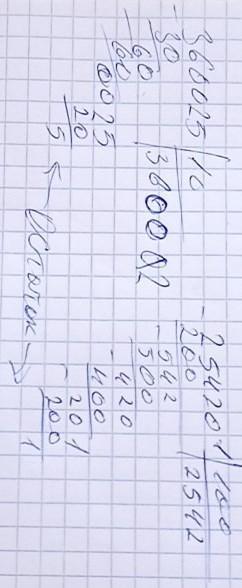 - 360025 | 10
30 | 360002
- 60
60
0025
20
5
← Остаток →
- 254201 | 100
200 | 2542
- 542
500
- 420
400
- 201
200
1